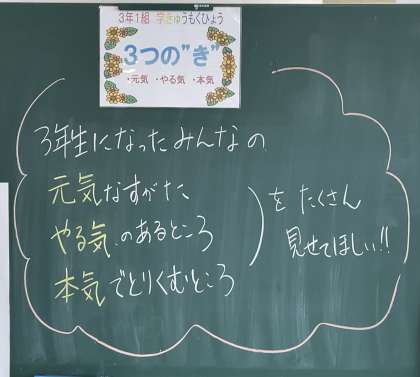 3年1組 学きゅうもくひょう
3つの"き"
・元気 ・やる気 ・本気
3年生になったみんなの
元気なすがた
やる気のあるところ
本気でとりくむところ
をたくさん
見せてほしい!!